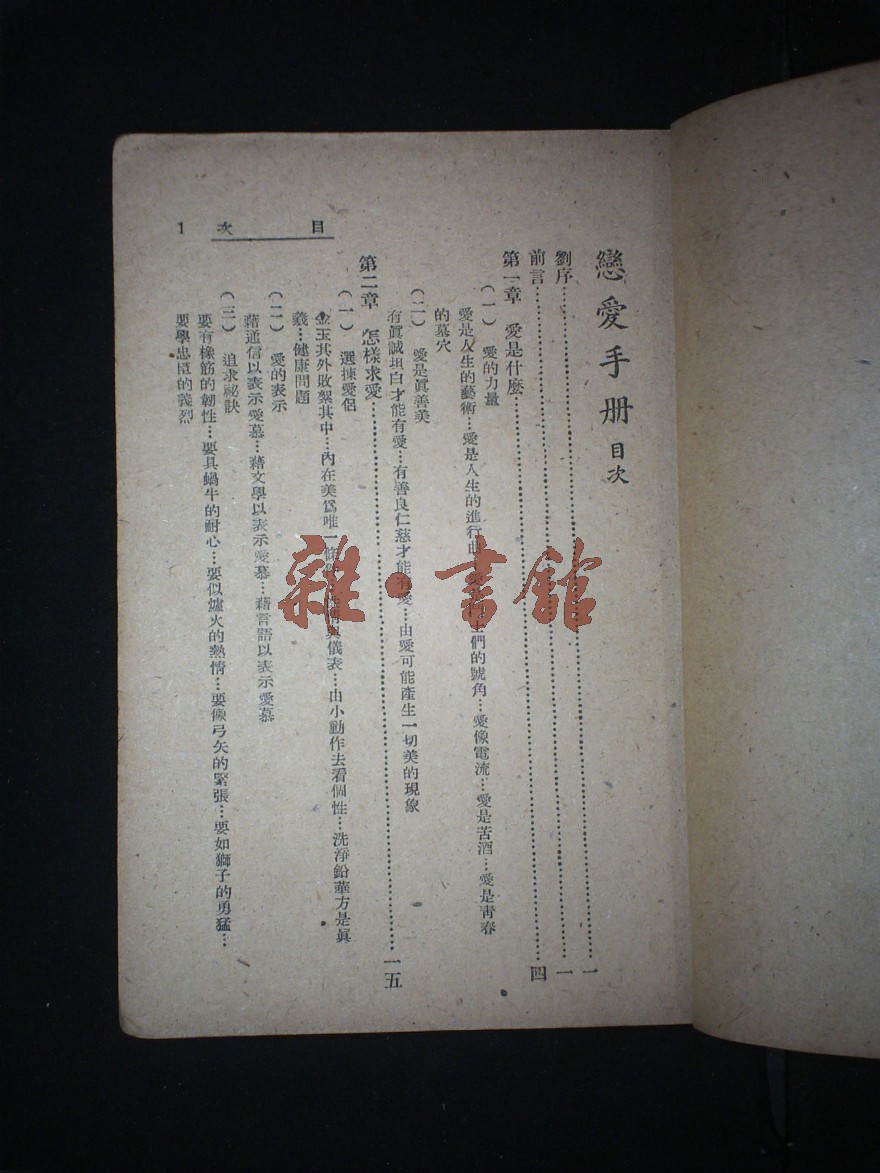 戀愛手册 目次
劉序…一
前言…一
第一章 愛是什麼…四
(一) 愛的力量
愛是人生的藝術…愛是人生的進行曲…士們的號角…愛像電流…愛是苦酒…愛是靑春
的墓穴
(二) 愛是眞善美
有眞誠坦白才能有愛…有善良仁慈才能有愛…由愛可能產生一切美的現象
第二章 怎樣求愛…一五
(一) 選揀愛侶
金玉其外敗絮其中…內在美爲唯一條與儀表…由小動作去看個性…洗淨鉛華方是眞
義…健康問題
(二) 愛的表示
藉通信以表示愛慕…藉文學以表示愛慕…藉言語以表示愛慕
(三) 追求祕訣
要有橡筋的韌性…要具蝸牛的耐心…要似爐火的熱情…要像弓矢的緊張…要如獅子的勇猛…
要學忠臣的義烈
目次 1
雜·書館